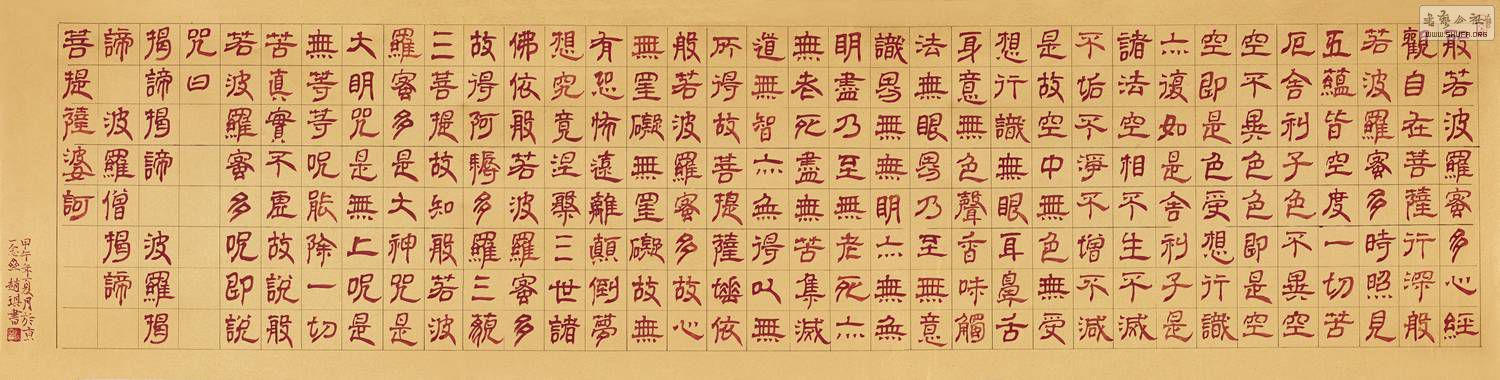 般若波羅蜜多心經
觀自在菩薩行深般
若波羅蜜多時照見
五蘊皆空度一切苦
厄舍利子色不異空
空不異色色即是空
空即是色受想行識
亦復如是舍利子是
諸法空相不生不滅
不垢不淨不增不減
是故空中無色無受
想行識無眼耳鼻舌
身意無色聲香味觸
法無眼界乃至無意
識界無無明亦無無
明盡乃至無老死亦
無老死盡無苦集滅
道無智亦無得以無
所得故菩提薩埵依
般若波羅蜜多故心
無罣礙無罣礙故無
有恐怖遠離顛倒夢
想究竟涅槃三世諸
佛依般若波羅蜜多
故得阿耨多羅三藐
三菩提故知般若波
羅蜜多是大神咒是
大明咒是無上呪是
無等等呪能除一切
苦真實不虛故說般
若波羅蜜多呪即說
咒曰
揭諦揭諦 波羅揭
諦 波羅僧揭諦
菩提薩婆訶
甲午年夏月於京
趙琪書
WWW.SHUFA.ORG